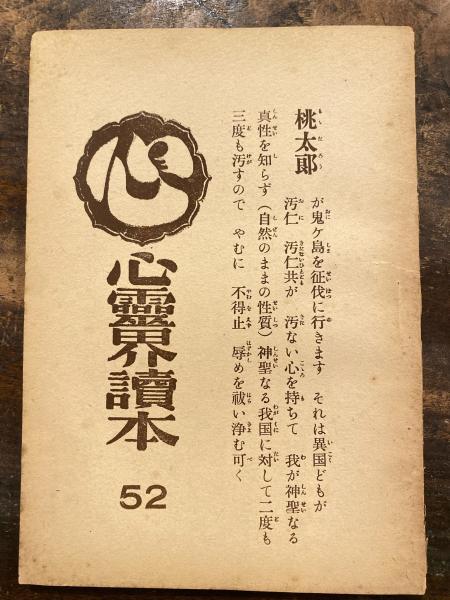 桃太郎 が鬼ケ島を征伐に行きます それは異国どもが
汚仁 汚仁共が 汚ない心を持ちて 我が神聖なる
真性を知らず(自然のままの性質)神聖なる我国に対して二度も
三度も汚すので やむに 不得止 辱めを祓い浄む可く
心
心霊界讀本
52